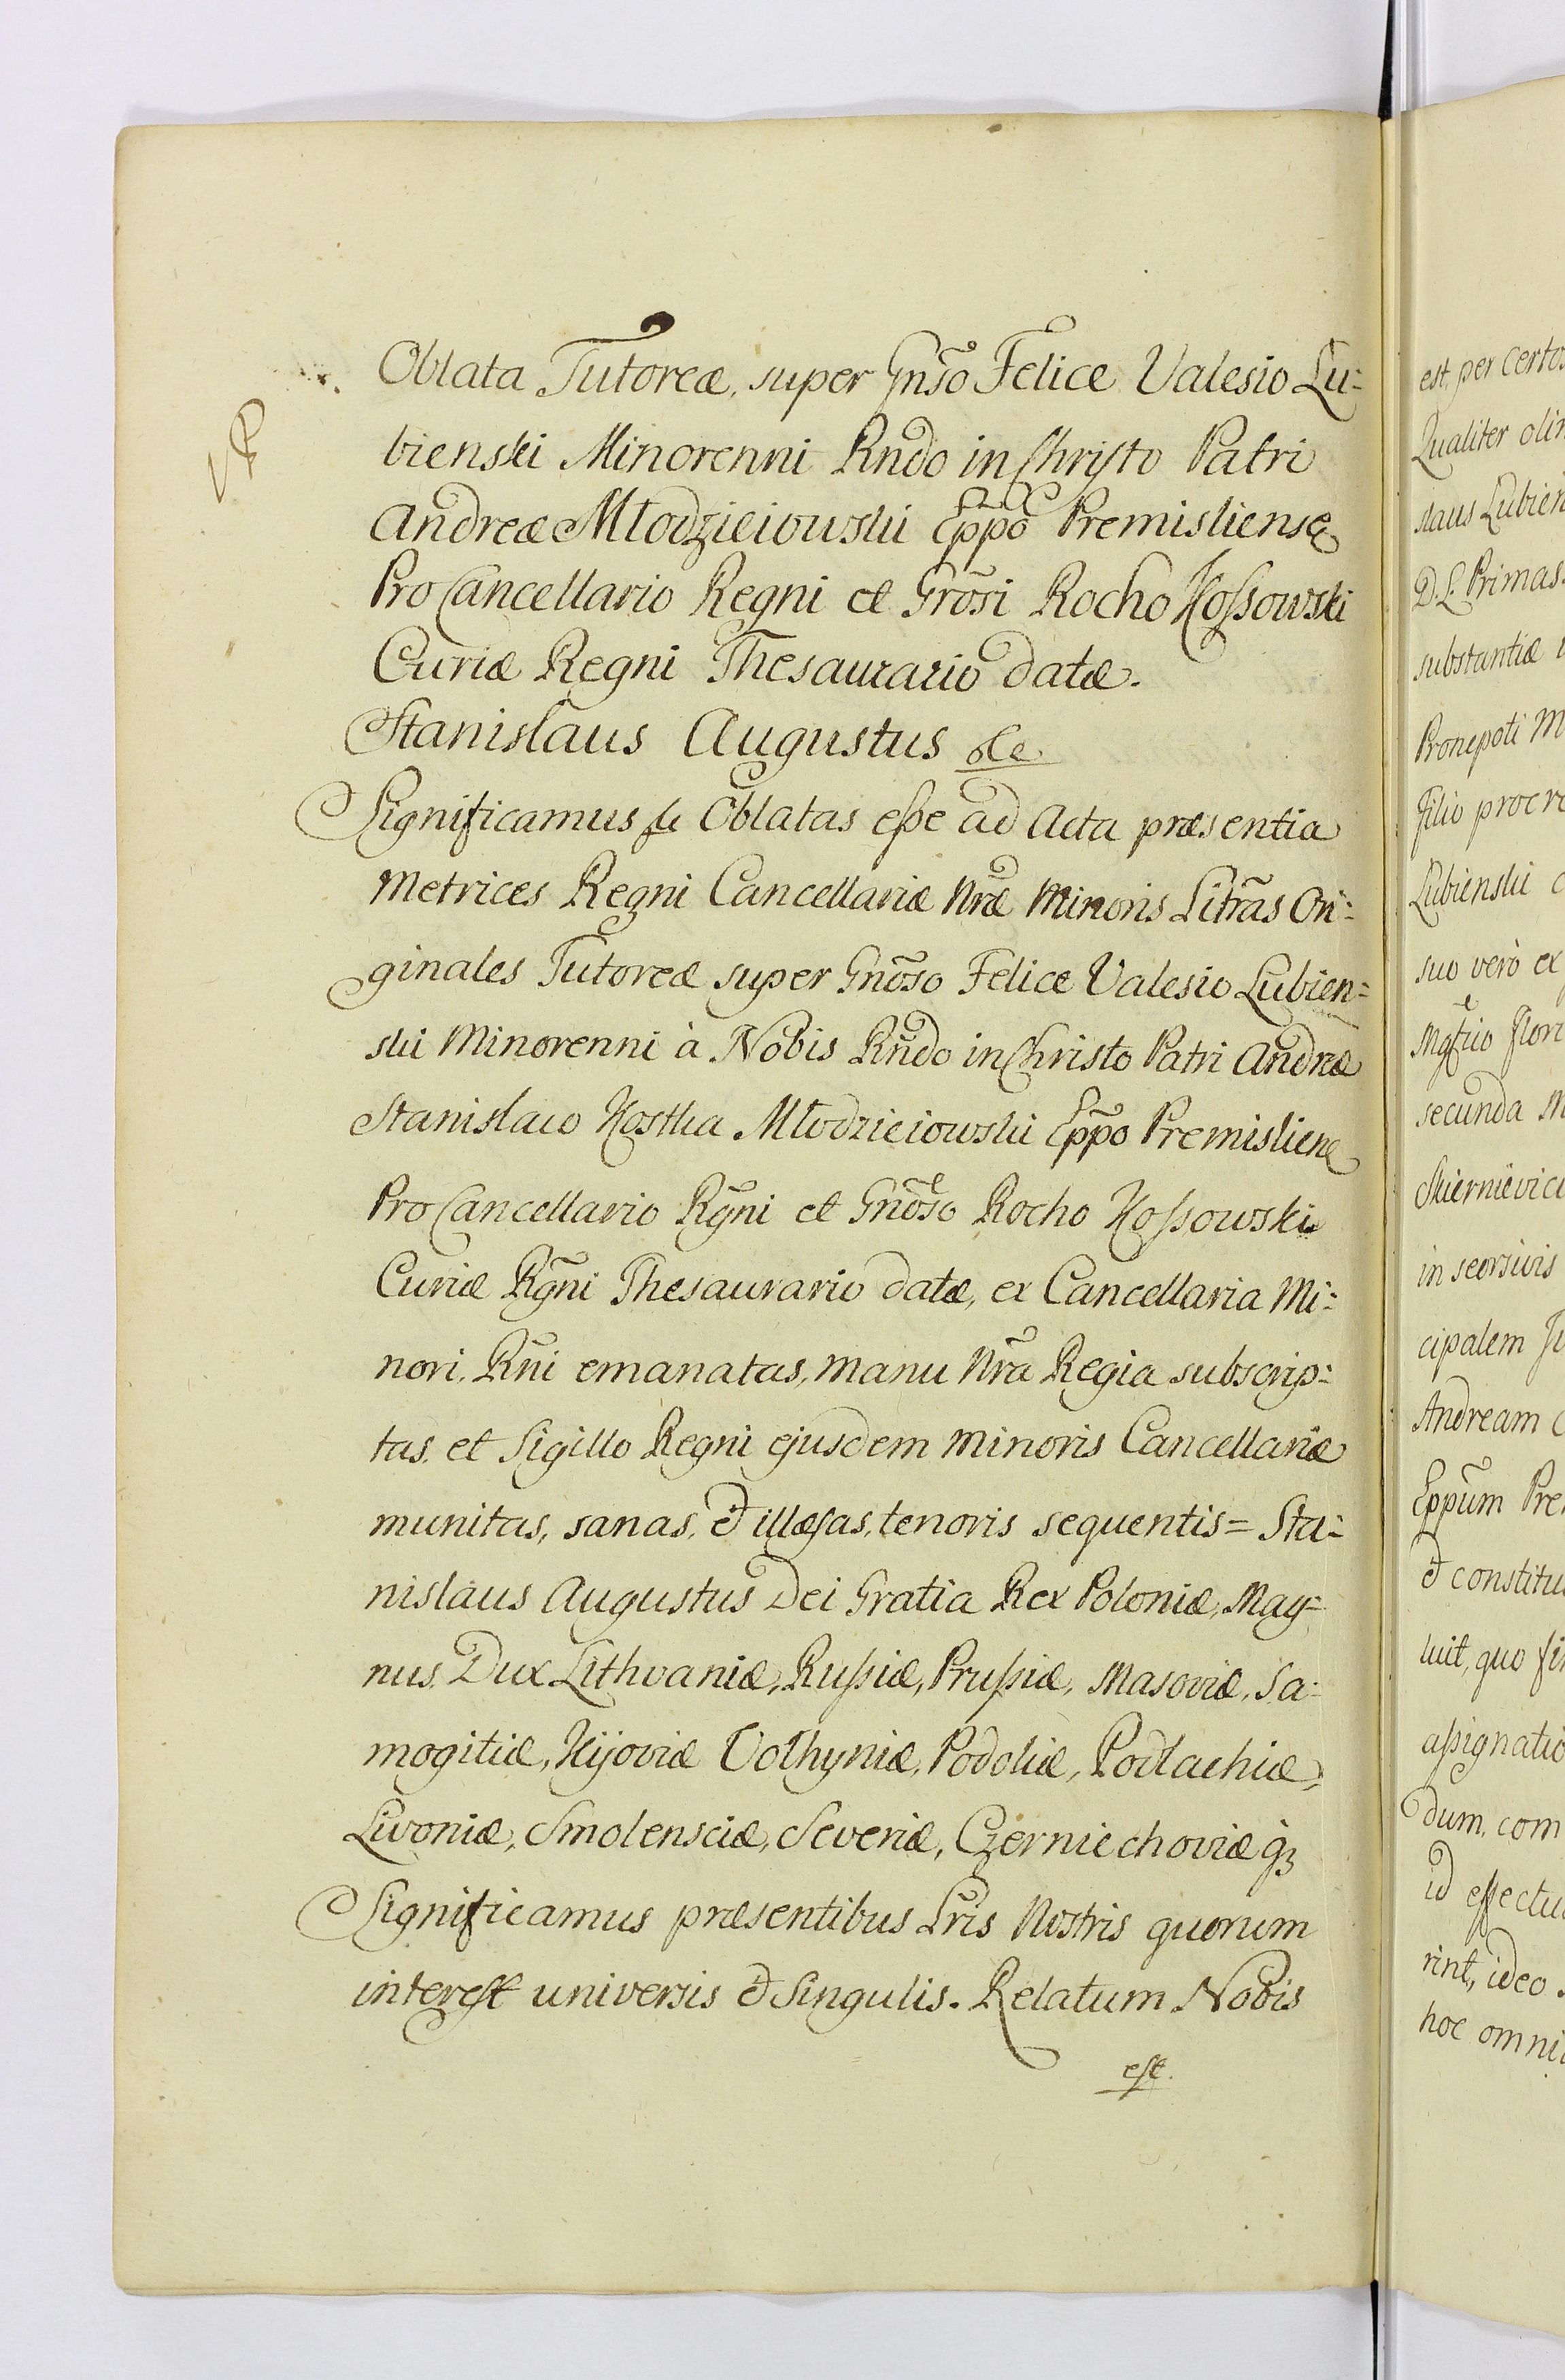 Oblata Tutoreæ, super Gnõso Felice Valesio Lu=
bienski Minorenni Rndo in Christo Patri
Andreæ Młodzieiowski Eppo Premisliense
Pro Cancellario Regni et Grosi Rocho Kossowski
Curiæ Regni Thesaurario datæ.
Stanislaus Augustus &c.
Significamus &c Oblatas esse ad Acta præsentia
Metrices Regni Cancellariæ Nræ Minoris Litras Ori=
ginales Tutoreæ super Gnõso Felice Valesio Lubien=
ski Minorenni à Nobis Rndo in Christo Patri Andreæ
Stanislao Kostka Młodzieiowski Eppo Premisliene
Pro Cancellario Rgni et Gnõso Rocho Kossowski
Curiæ Rgni Thesaurario datæ, ex Cancellaria Mi=
nori. Rni emanatas, manu Nra Regia subscrip=
tas. et Sigillo Regni ejusdem minoris Cancellariæ
munitas, sanas, & illæsas, tenoris sequentis = Sta=
nislaus Augustus Dei Gratia Rex Poloniæ, Mag=
nus Dux Lithvaniæ, Russiæ, Prussiæ, Masoviæ, Sa=
mogitiæ, Kijoviæ Volhyniæ, Podoliæ, Podlachiæ,
Livoniæ, Smolensciæ, Severiæ, Czerniechoviæ q3
Significamus præsentibus Lris Nostris quorum
interest universis & Singulis. Relatum Nobis
est.
est, per certos
Qualiter olim
slaus Lubien
D. L. Primas
substantiæ
Pronepoti M
filio procre
Lubienski
suo verò ex
secunda M
Skiernievice
in seorsivis
cipalem
Andream
Eppum Pre
& constitu
luit, quo fi
assignatio
dum, com
id effectu
rint, ideo
hoc omni